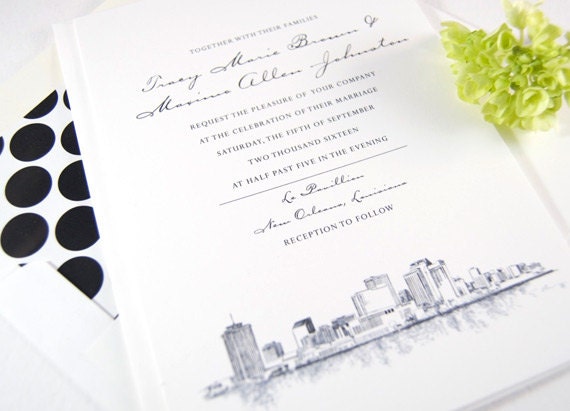 TOGETHER WITH THEIR FAMILIES
Tracy Marie Brown &
Maximo Allen Johnston
REQUEST THE PLEASURE OF YOUR COMPANY
AT THE CELEBRATION OF THEIR MARRIAGE
SATURDAY, THE FIFTH OF SEPTEMBER
TWO THOUSAND SIXTEEN
AT HALF PAST FIVE IN THE EVENING
Le Pavillion
New Orleans, Louisiana
RECEPTION TO FOLLOW